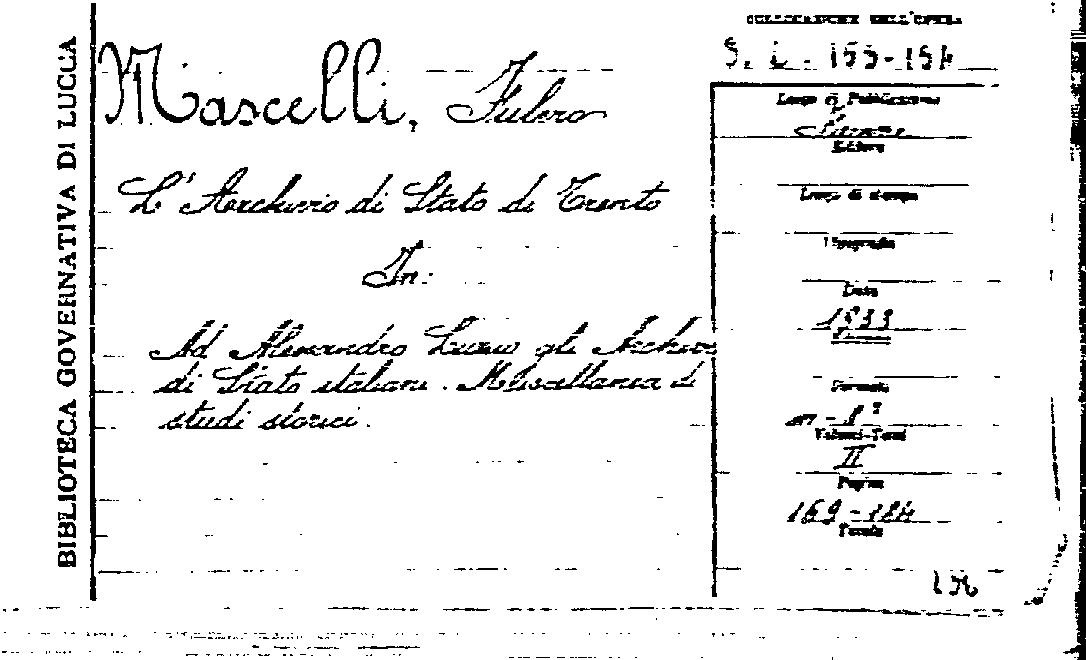 BIBLIOTECA GOVERNATIVA DI LUCCA
COLLOCAZIONE DELL'OPERA
S. L. 153-154
Mascelli, Fulero
L'Archivio di Stato di Trento
In:
Ad Alessandro Luzio gli Archivi
di Stato italiani. Miscellanea di
studi storici.
Luogo di Pubblicazione
Firenze
Editore
Luogo di stampa
Tipografia
Data
1933
Formato
in-8°
Volumi-Tomi
II
Pagine
169-184
Tavole